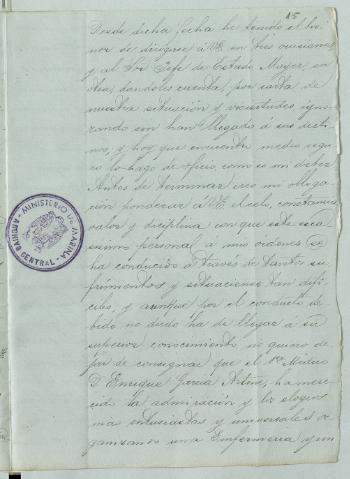 15
Desde dicha fecha he tenido el ho-
nor de dirigirme á VE en tres ocasiones
y al Sor Gefe de Estado Mayor en
otra, dandoles cuenta, por carta de
nuestra situación y vicisitudes igno-
rando sin han llegado á sus desti-
nos, y hoy que encuentro medio segu-
ro lo hago de oficio como es mi deber
Antes de terminar creo mi obliga-
ción ponderar á VE el celo, constancia
valor y disciplina con que este esca-
sisimo personal á mis ordenes se
ha conducido á través de tantos su-
frimientos y situaciones tan difi-
ciles, y aunque por el conducto de-
bido no dudo ha de llegar a su
superior conocimiento no quiero de-
jar de consignar que el 1er Médico
D. Enrique Garcia ha mere-
cido la admiración y los elogios
mas entusiastas y universales or-
ganizando una Enfermeria y un
MINISTERIO DE MARINA
ARCHIVO CENTRAL